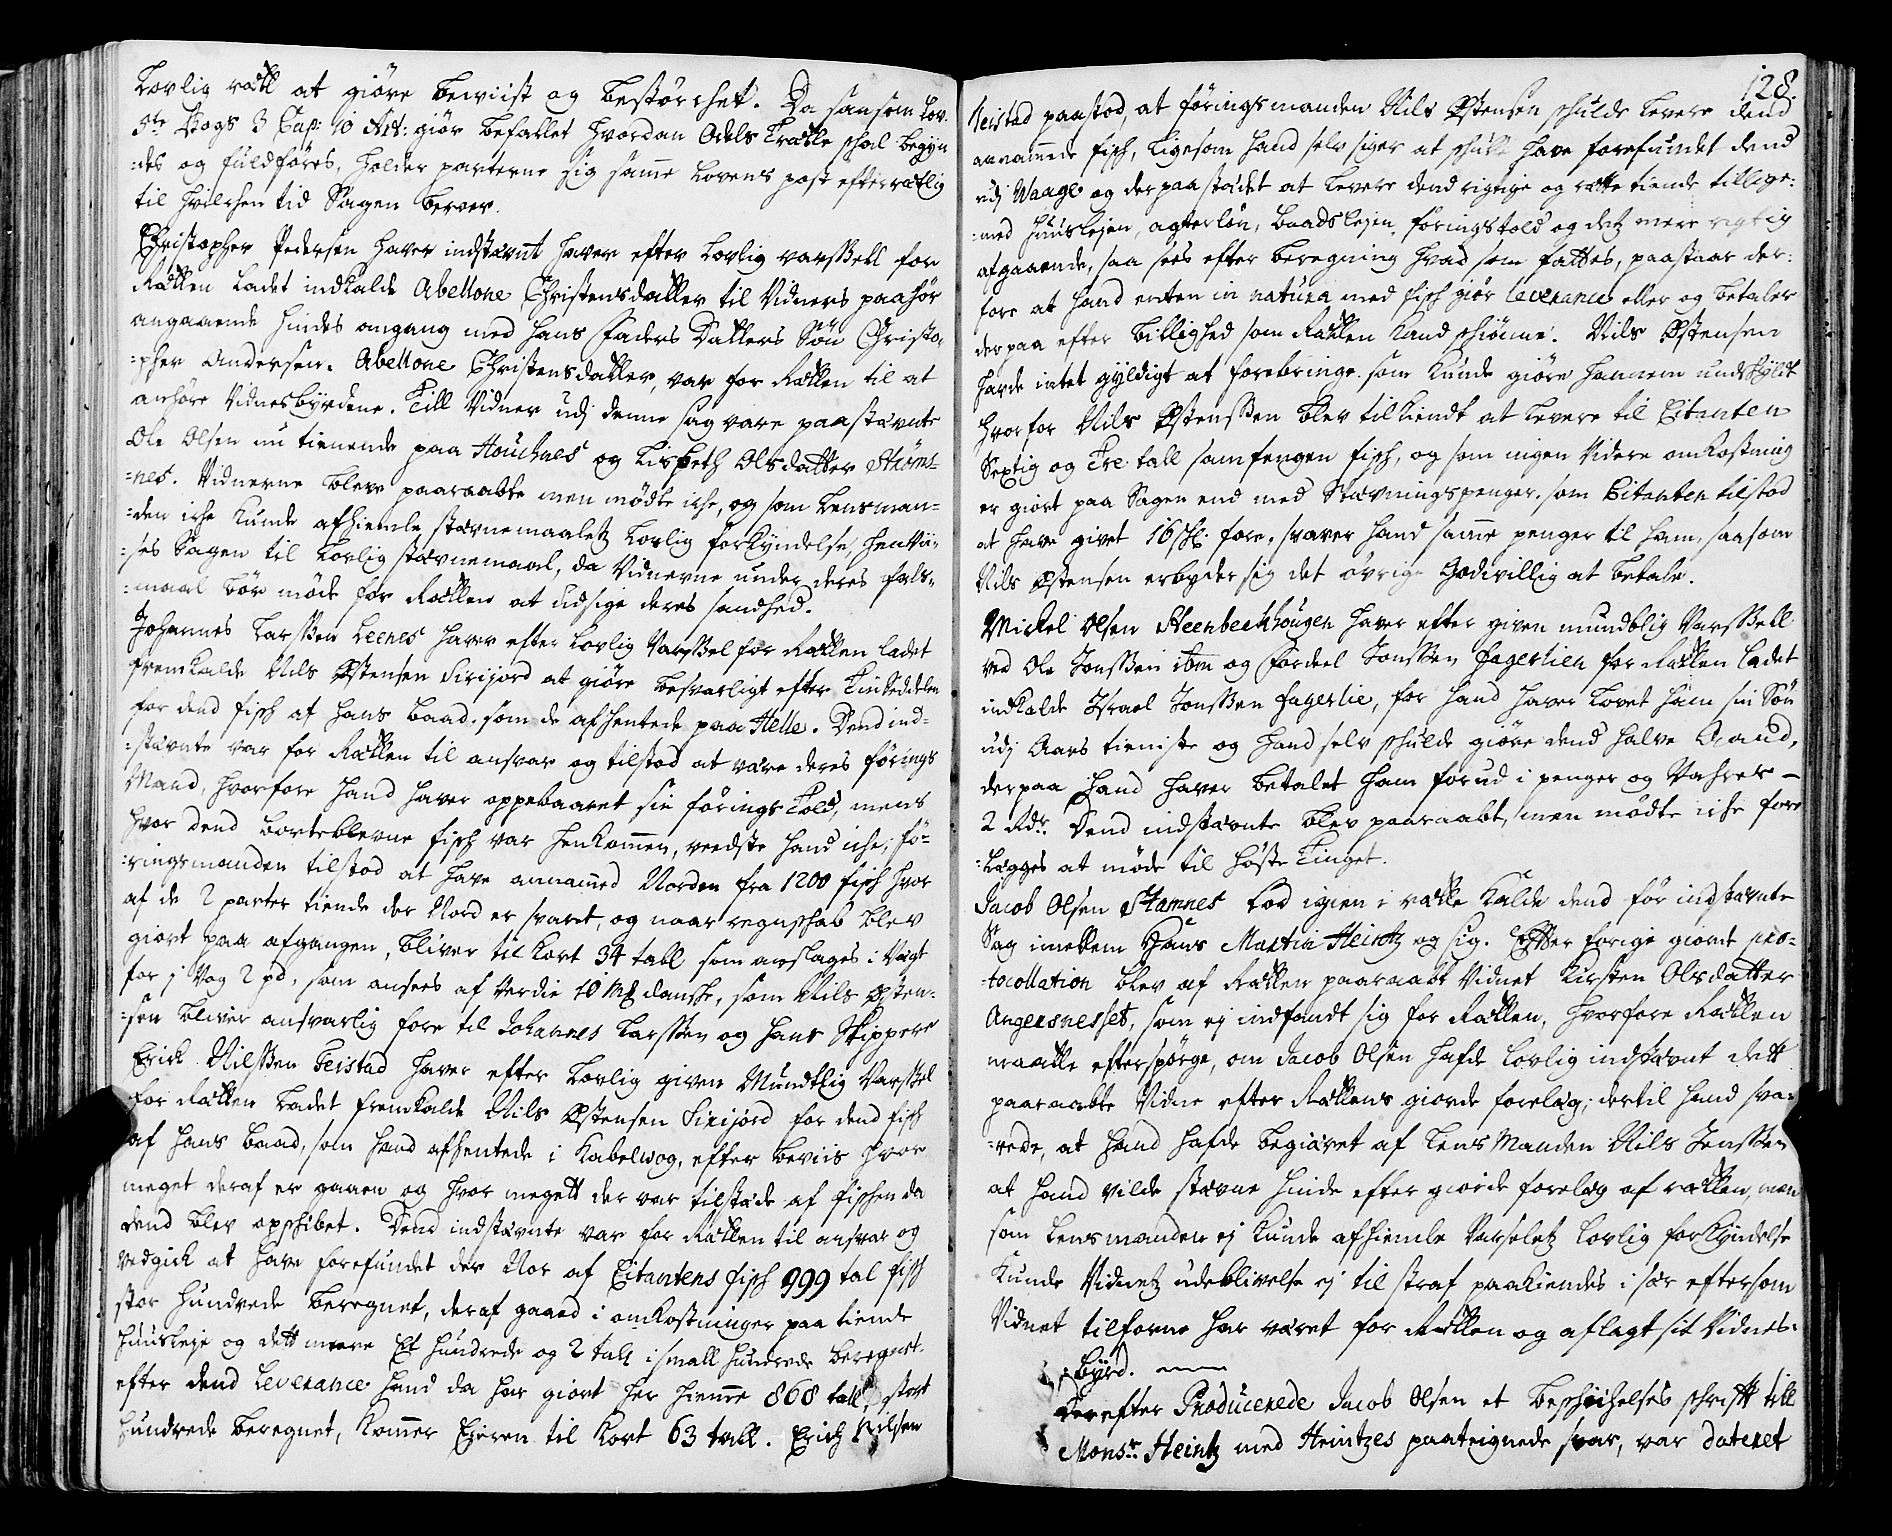 Lovlig rætt at giöre beviist og bestörchet. Da saasom Lov.
5te Bogs 3 Cap: 10 Art: giör befallet hvordan Odels Trætte schal begyn
:des og fuldföres, holder parterne sig samme Lovens post efterrætlig
til hvilchen tid Sagen beroer.
Christopher Pedersen haver indstævnt haver efter Lovlig varssell for
Rætten ladet indkalde Abellone Christensdatter til Vidners paahör
angaaende hindes omgang med hans Faders Datters Sön Christo,
:pher Andersen. Abellone Christensdatter, var for Rætten til at
anhöre Vidnesbyrdene. Till Vidner udj denne sag vare paastævnte
Ole Olsen nu tienende paa Houchnes og Lisbeth Olsdatter Strömf-
:nes. Vidnerne blev paaraabte men mödte iche, og som Lensman-
:den iche kunde afhiemle stævnemaaletz Lovlig forkyndelse, henvii-
:ses Sagen til Lovlig stævnemaal, da Vidnerne under deres fals,
:maal bör möde for Rætten at udsige deres sandhed.
Johannes Larssen Leenes haver efter Lovlig Varssel for Rætten ladet
fremkalde Nils Østensen Sirijord at giöre besvarligt efter Tinseddelen
for dend fisch af hans baad, som de afhentede paa Helle. Dend ind-
:stævnte var for Rætten til ansvar og tilstod at være deres förings
Mand, hvorfore hand haver oppebaaret sin förings Told, mens
hvor dend borteblevne fisch var henkommen, veedste hand iche, fö-
:ringsmanden tilstod at have annammed Norden fra 1200 fisch hvor
af de 2 parter tiende der Nord er svaret, og naar regnschab blev
giort paa afgangen, bliver til kort 34 tall som anslages i vegt
for j Vog 2 pd, som ansees af Verdie 10 mk danske, som Nils Østen-
:sen bliver ansvarlig fore til Johannes Larssen og hans Skippere
Erich Nilssen Teistad haver efter Lovlig given Mundtlig Varssel
for Rætten ladet fremkalde Nils Østensen Sirijord for dend fisch
af hans baad, som hand afhentede i Kabelwog, efter beviis hvor
meget deraf er gaaen og hvor megett der var tilstæde af fischen da
dend blev opschibet. Dend indstævnte var for Rætten til ansvar og
vedgick at have forefundet der Nor af Citantens fisch 999 tal fisch
stor hundrede beregnet, deraf gaaed i omkostninger paa tiende
huusleje og dett meere Et hundrede og 2 tall i small hundrede beregnet.
efter dend Leverance hand da har giort her hiemme 868 tall, stort
hundrede beregnet, kommer Ejeren til kort 63 tall. Erich Nilsen
128.
Teistad paastod, at föringsmanden Nils Østensen schulde levere dend
annammede fisch, ligesom hand selv siger at schulle have forefundet dend
udj Waage og der paa stædet at levere dend rigtige og rætte tiende tillige:
:med huuslejen, agterlön, baadslejen, föringstold og detz mere rigtig
afgaaende, saa sees efter beregning hvad som fattes, paastaar der:
fore at hand enten in natura med fisch giör Leverance eller og betaler
derpaa efter billighed som Rætten kand schiönne. Nils Østensen
havde intet gyldigt at forebringe som kunde giöre hannem undschyldt
hvorfor Nils Østenssen blev tilkiendt at levere til Citanten
Sextig og Tre tall samfengen fisch, og som ingen Videre omkostning
er giort paa Sagen end med Stævningspenger, som Citanten tilstod
at have givet 16 sch. fore, svarer hand samme penger til ham, saasom
Nils Østensen erbyder sig det övrige Godvillig at betale.
Mickel Olsen Steenbechhougen haver efter given mundtlig Varssell
ved Ole Jonssen ibm og Fordeel Jonssen Fagerlien for Rætten ladet
indkalde Israel Jonssen Fagerlie, for hand haver Lovet ham sin Sön
udj Aars tieniste og hand selv schulde giöre dend halve Aand,
derpaa hand haver betalet ham forud i penger og Vahrer -
2 Rdr. Dend indstævnte blev paaraabt, men mödte iche fore
:Legges at möde til höste Tinget.
Jacob Olsen Stamnes lod igien i rætte kalde dend för indstævnte
Sag imellem Hans Martin Heintz og sig. Efter forige giorde pro-
:tocollation blev af Rætten paaraabt Vidnet Kirsten Olsdatter
Angersnesset, som ej indfandt sig for Rætten, hvorfore Rætten
maatte efterspörge, om Jacob Olsen hafde Lovlig indstævnt dett
paaraabte Vidne efter Rættens giorde forelæg; dertil hand sva-
:rede, at hand hafde begiæret af Lens Manden Nils Jenssen
at hand vilde stævne hinde efter giorde forelæg af rætten, men
som Lensmanden ej kunde afhiemle Varseletz Lovlig forkyndelse
kunde Vidnetz udeblivelse ej til straf paakiendes i sær eftersom
Vidnet tilforne har været for Rætten og aflagt sit Vidnes-
:byrd.
Derefter Producerede Jacob Olsen et beschichelses schrift till
Monsr. Heintz med Heintzes paateignede svar, var dateret